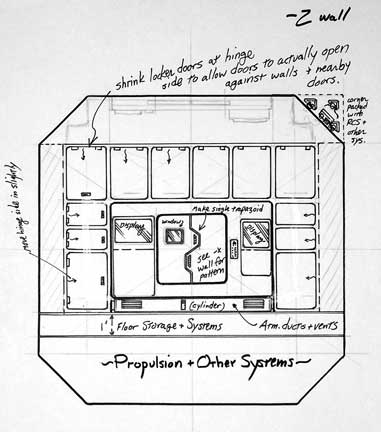 -Z wall
shrink locker doors at hinge
side to allow doors to actually open
against walls + nearby
doors.
corner
packed
with
RCS +
other
sys.
move hinge side in slightly
make single trapazoid
window
Display
Display
see -x
wall for
pattern
(cylinder)
1'
Floor Storage + Systems
Atm. ducts + vents
~Propulsion + Other Systems~